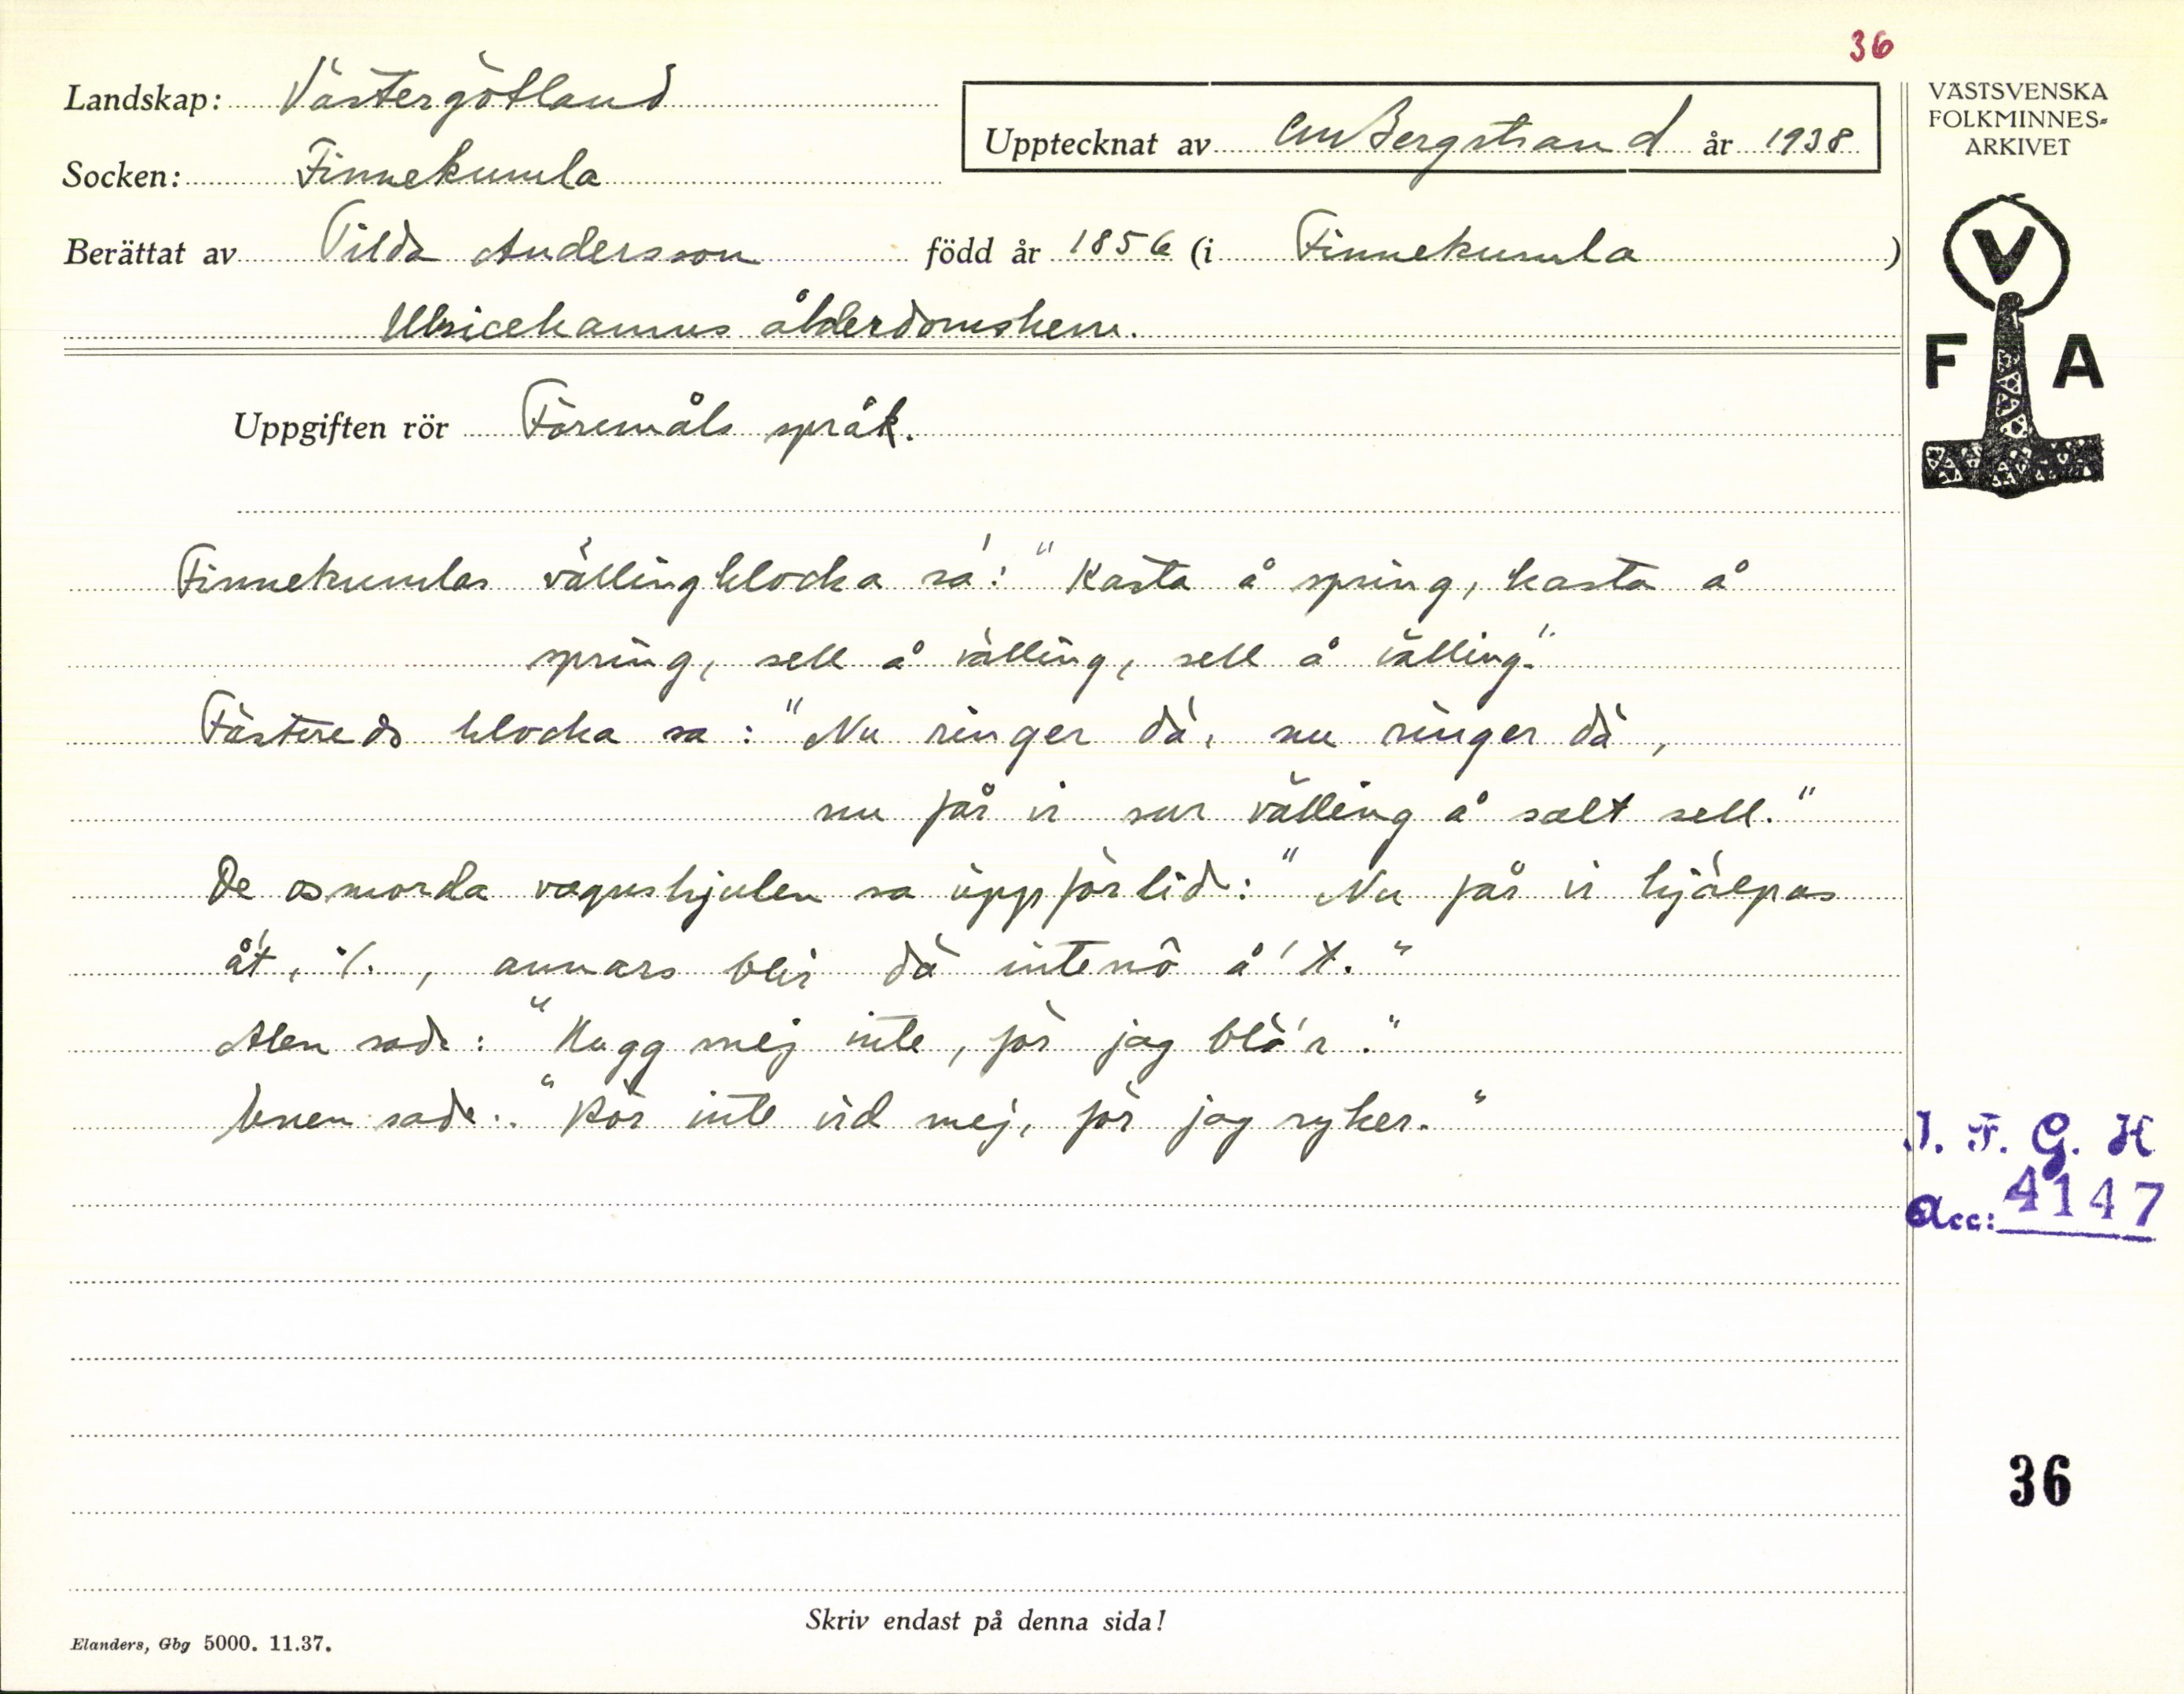 36
Landskap: Västergötland
Upptecknat av CM Bergstrand år 1938
VÄSTSVENSKA
FOLKMINNES-
ARKIVET
Socken: Finnekumla
Berättat av Tilda Andersson född år 1856 (i Finnekumla)
Ulricehamns ålderdomshem.
V
F A
Uppgiften rör Föremåls språk.
Finnekumlas vällingklocka sa: "Kasta å spring, kasta å
spring, sell å välling, sell å välling."
Fästereds klocka sa: "Nu ringer dä, nu ringer dä,
nu får vi sur välling å salt sell."
De osmorda vagnshjulen sa uppför lid: "Nu får vi hjälpas
åt, ·/., annars blir dä intenô å't."
Alen sade: "Hugg mej inte, för jag blö'r."
Enen sade: "Rör inte vid mej, för jag ryker."
J. F. G. H
Acc: 4147
36
Skriv endast på denna sida!
Elanders, Gbg 5000. 11.37.